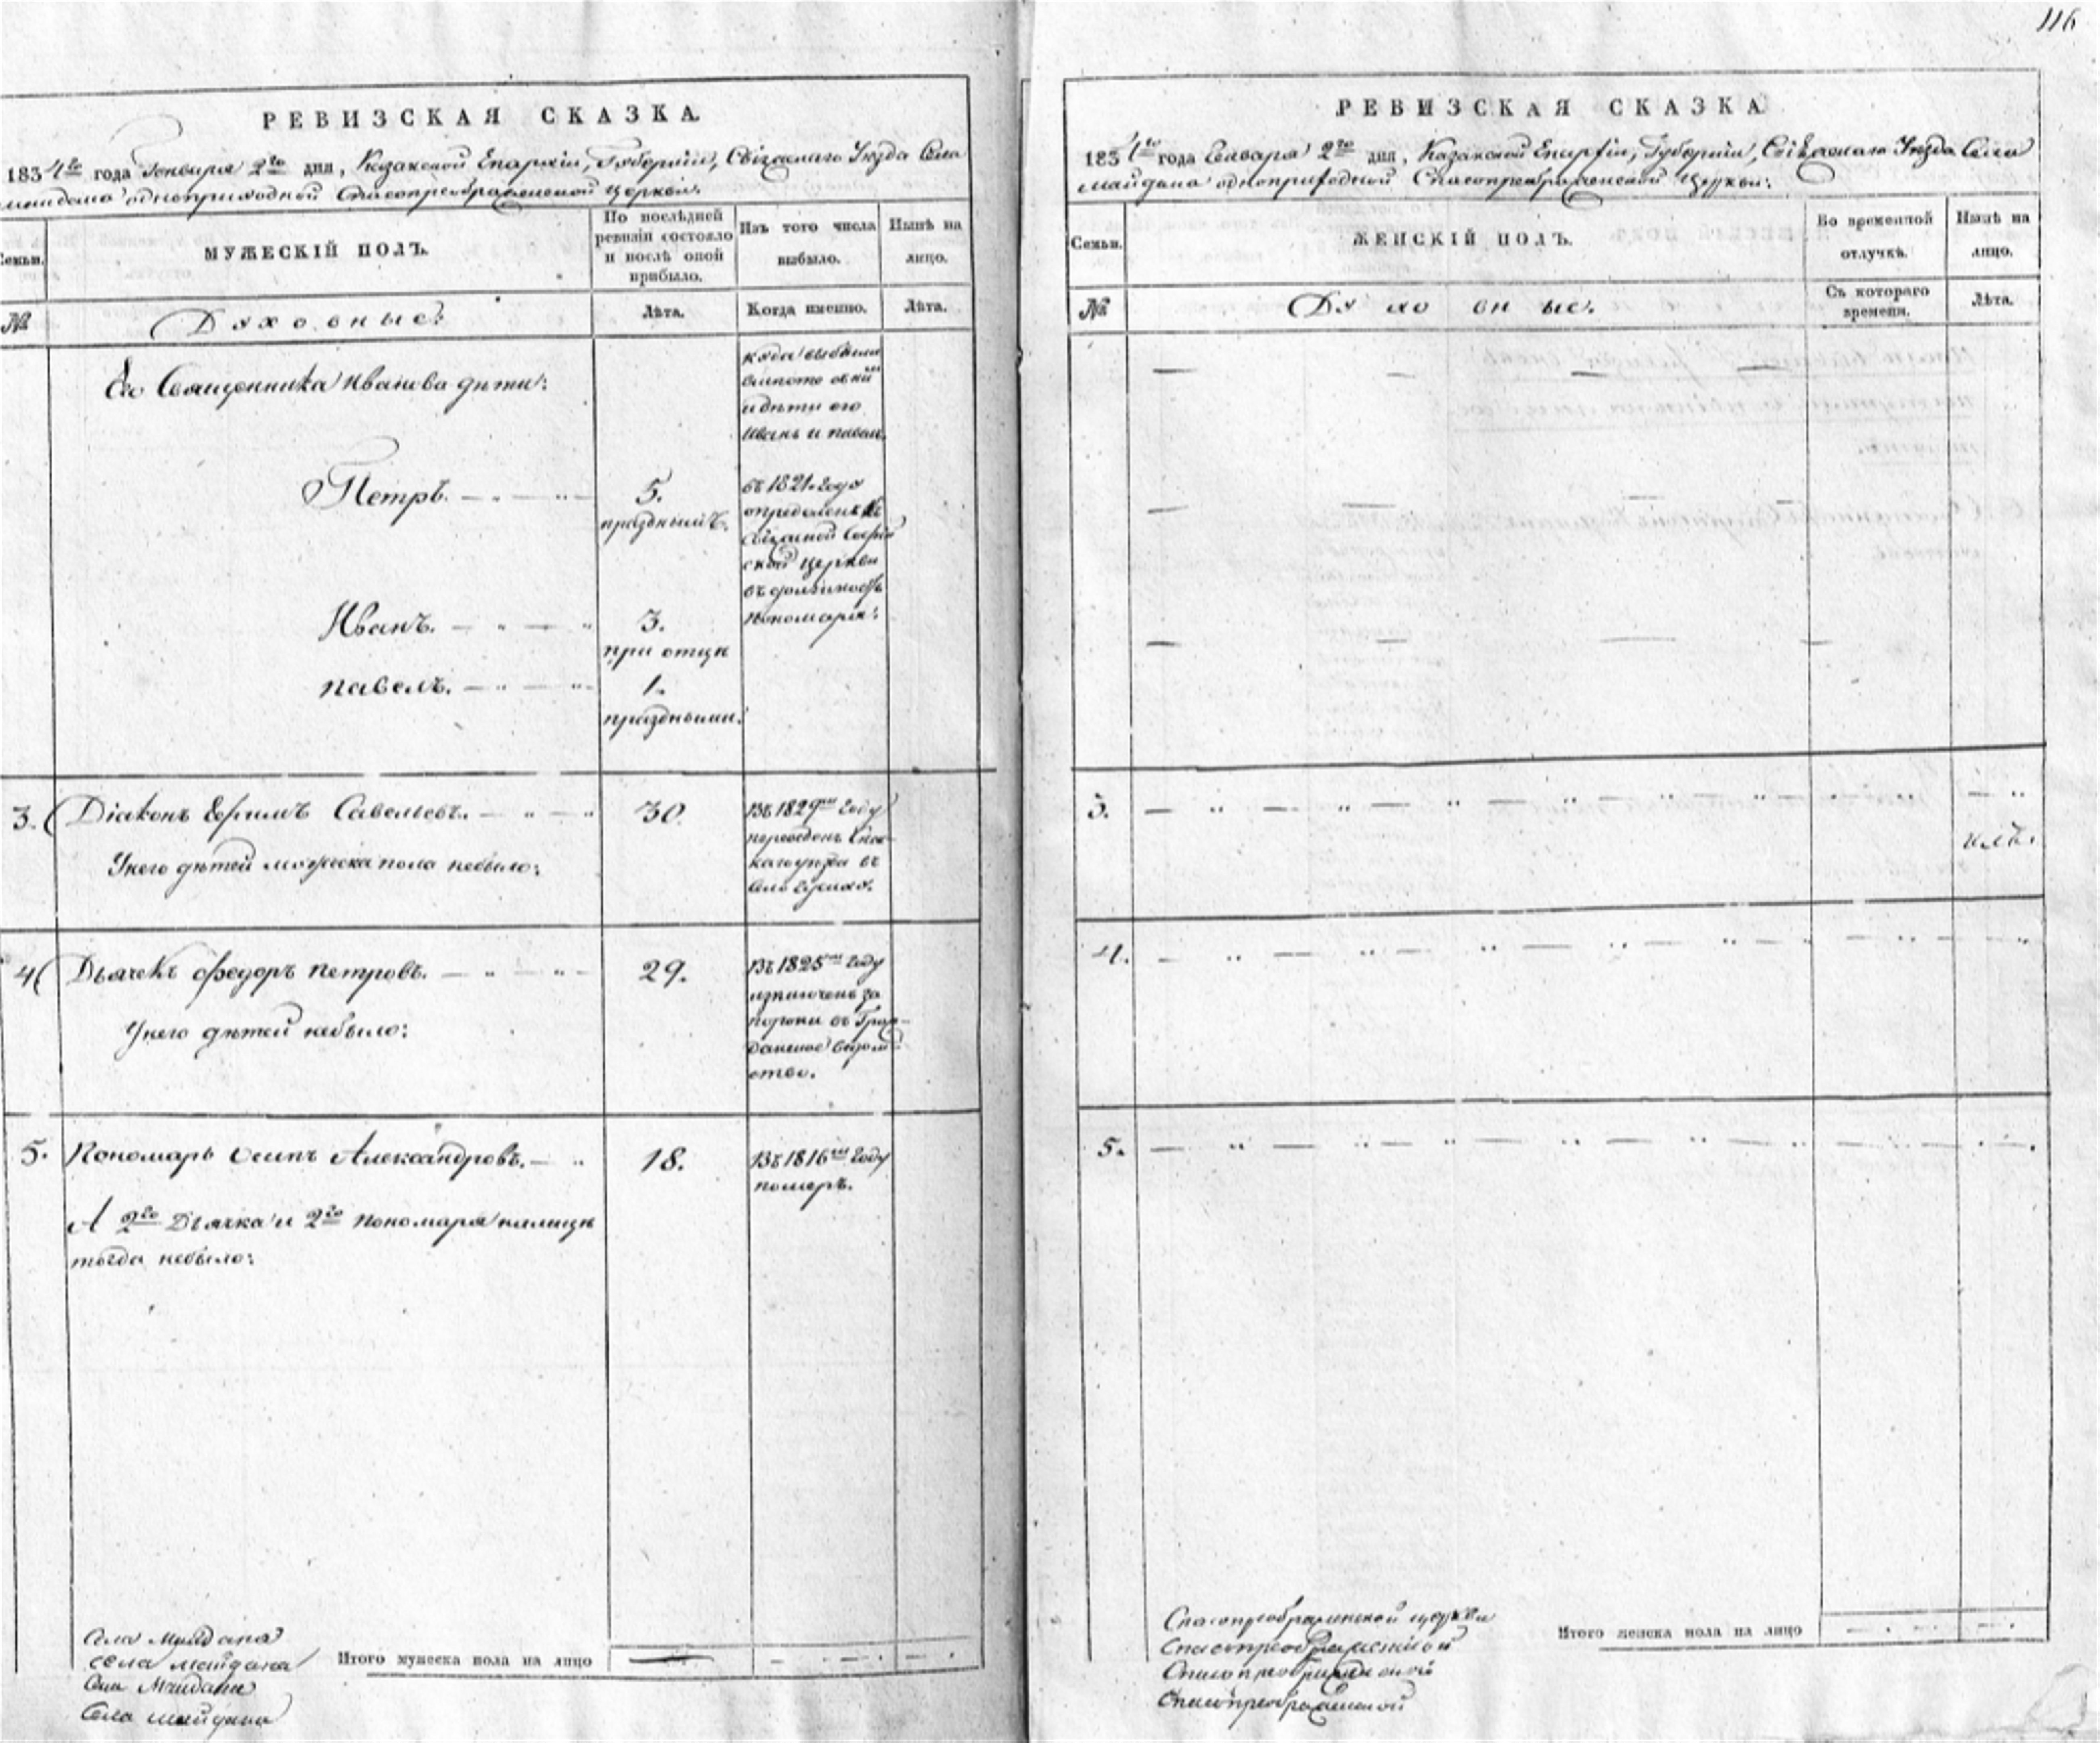 116
РЕВИЗСКАЯ СКАЗКА.
1834го года Генваря 2го дня, Казанской Епархіи, Губерніи, Свіяжскаго Уезда Села
маидана одноприходной Спасопреображенской церкви.
Семьи.
МУЖЕСКІЙ ПОЛЪ.
По послѣдней
ревизіи состояло
и послѣ оной
прибыло.
Изъ того числа
выбыло.
Нынѣ на
лицо.
№
Духовные:
Лѣта.
Когда именно.
Лѣта.
Его Священника Иванова дѣти:
куда выбыли
и дѣти его
Иванъ и павелъ.
Петръ. 5.
праздныиъ.
съ 1821. года
опредѣленъ къ
Свіяжской Софій
ской церкви
въ должность
пономаря:
Иванъ. 3.
при отцѣ
павелъ. 1.
праздными.
3. Діаконъ Ефимъ Савельевъ. 30
Унего дѣтей мужеска пола небыло:
Въ 1829мъ году
переведенъ Спас-
каго уезда въ
село
4 Дьячекъ Федоръ петровъ. 29.
Унего дѣтей небыло:
Въ 1825мъ году
изключенъ за
пороки въ Граж-
данское ведом-
ство.
5. Пономарь осипъ Александровъ. 18.
Въ 1816мъ году
померъ.
А 2го Дьячка и 2го пономаря налицѣ
тогда небыло:
Села Маидана
села маидана
Села Маидана
Села маидана
Итого мужеска пола на лицо
РЕВИЗСКАЯ СКАЗКА
1834го года Генваря 2го дня, Казанской Епархіи, Губерніи, Свіяжскаго Уезда Села
маидана одноприходной Спасопреображенской Церкви:
Семьи.
ЖЕНСКІЙ ПОЛЪ.
Во временной
отлучкѣ.
Нынѣ на
лицо.
№
Духовные.
Съ котораго
времени.
Лѣта.
3.
4.
5.
Спасопреображенской церкви
Спасопреображенской
Спасопреображенской
Спасопреображенской
Итого женска пола на лицо